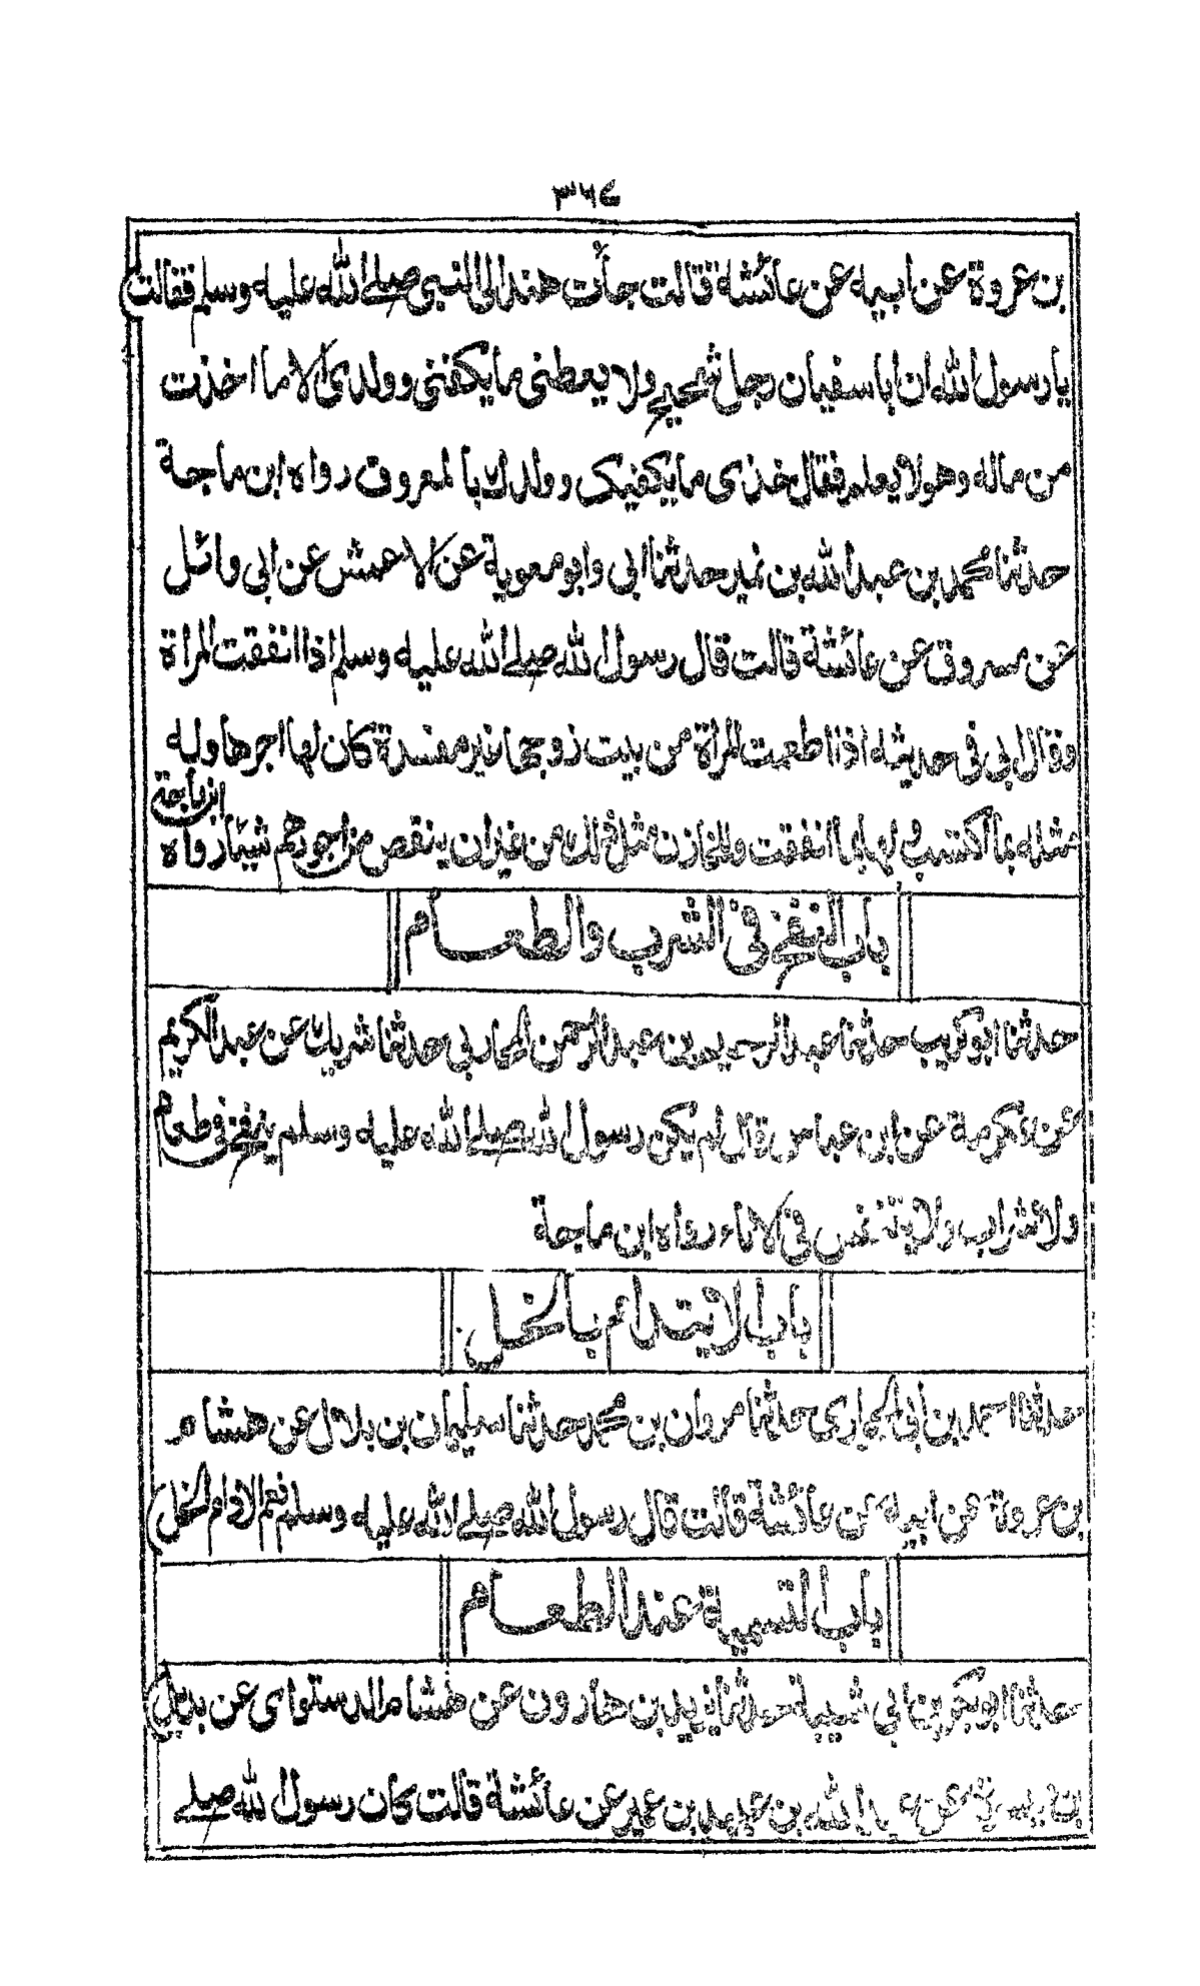 ٣٦٧
بن عروة عن ابيه عن عائشة قالت جأت هند الى النبى صلے الله عليه وسلم فقالت
يا رسول الله ان ابا سفيان رجل شحيح ولا يعطنى ما يكفنى وولدى الا ما اخذت
من ماله وهو لا يعلم فقال خذى ما يكفيك وولدك بالمعروف رواه ابن ماجة
حدثنا محمد بن عبد الله بن نمير حدثنا ابى وابو معوية عن الاعمش عن ابى وائل
عن مسروق عن عائشة قالت قال رسول الله صلے الله عليه وسلم اذا انفقت المراة
وقال ابى فى حديثه اذا اطعمت المراة من بيت زوجها غير مفسدة كان لها اجرها وله
مثله بما اكتسب ولها بما انفقت وللخازن مثل ذلك من غير ان ينقص من اجورهم شيئا رواه
ابن ماجة
باب النفخ فى الشرب والطعام
حدثنا ابو كريب حدثنا عبد الرحيم بن عبد الرحمن المحاربى حدثنا شريك عن عبد الكريم
عن عكرمة عن ابن عباس قال لم يكن رسول الله صلے الله عليه وسلم ينفخ فى طعام
ولا شراب ولا يتنفس فى الاناء رواه ابن ماجة
باب الايتدام بالخل
حدثنا احمد بن ابى الحوارى حدثنا مروان بن محمد حدثنا سليمان بن بلال عن هشام
بن عروة عن ابيه عن عائشة قالت قال رسول الله صلے الله عليه وسلم نعم الادام الخل
باب التسمية عند الطعام
حدثنا ابو بكر بن ابى شيبة حدثنا يزيد بن هارون عن هشام الدستوای عن بديل
بن ميسرة عن عبد الله بن عبيد بن عمير عن عائشة قالت كان رسول الله صلے